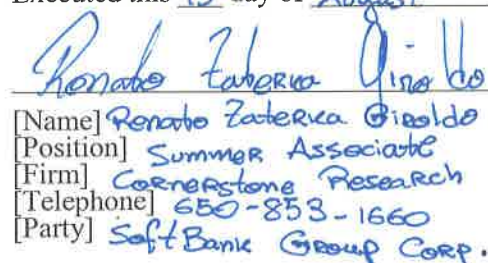 Executed this 15 day of August
Renato Zaterka Giraldo
[Name] Renato Zaterka Giraldo
[Position] Summer Associate
[Firm] Cornerstone Research
[Telephone] 650-853-1660
[Party] SoftBank Group Corp.